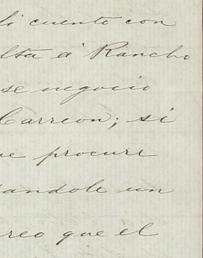 li cuento con
lta á Rancho
se negocio
Carreon; si
ue procure
andole un
reo que el